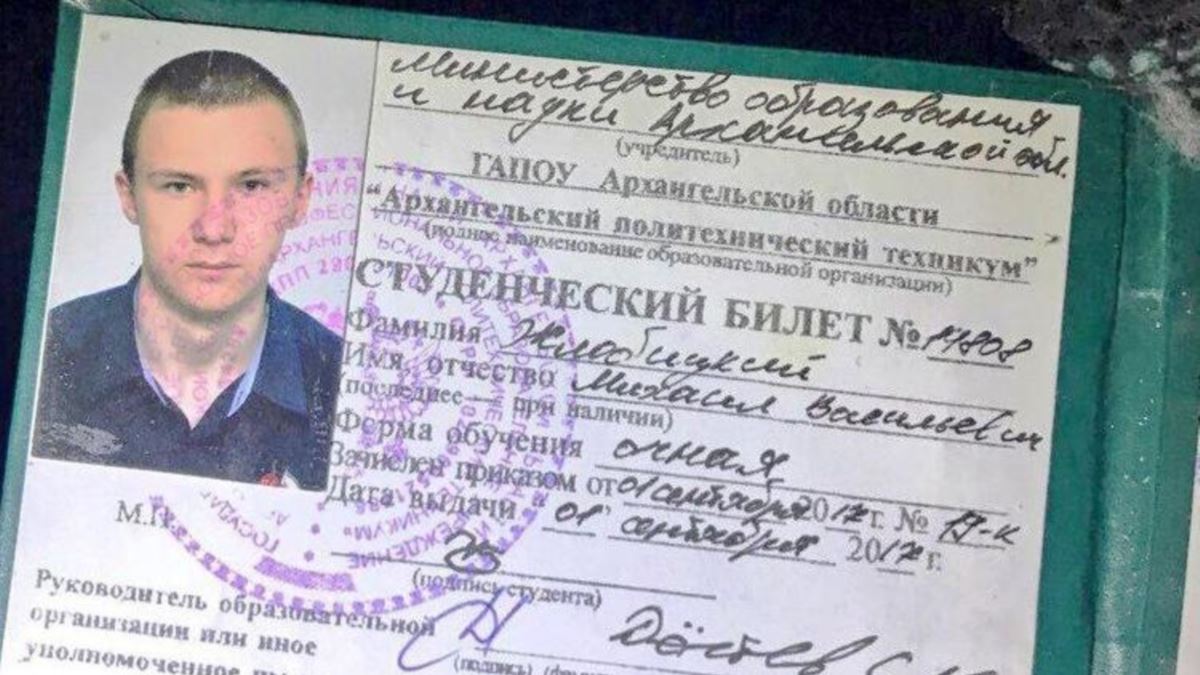 Министерство образования
и науки Архангельской обл.
(учредитель)
ГАПОУ Архангельской области
"Архангельский политехнический техникум"
(полное наименование образовательной организации)
СТУДЕНЧЕСКИЙ БИЛЕТ № 17808
Фамилия Жлобицкий
Имя, отчество Михаил Васильевич
(последнее — при наличии)
Форма обучения очная
Зачислен приказом от 01 сентября 2017 г. № 19-к
Дата выдачи "01" сентября 2017 г.
М.П.
(подпись студента)
Руководитель образовательной
организации или иное
уполномоченное
(подпись)